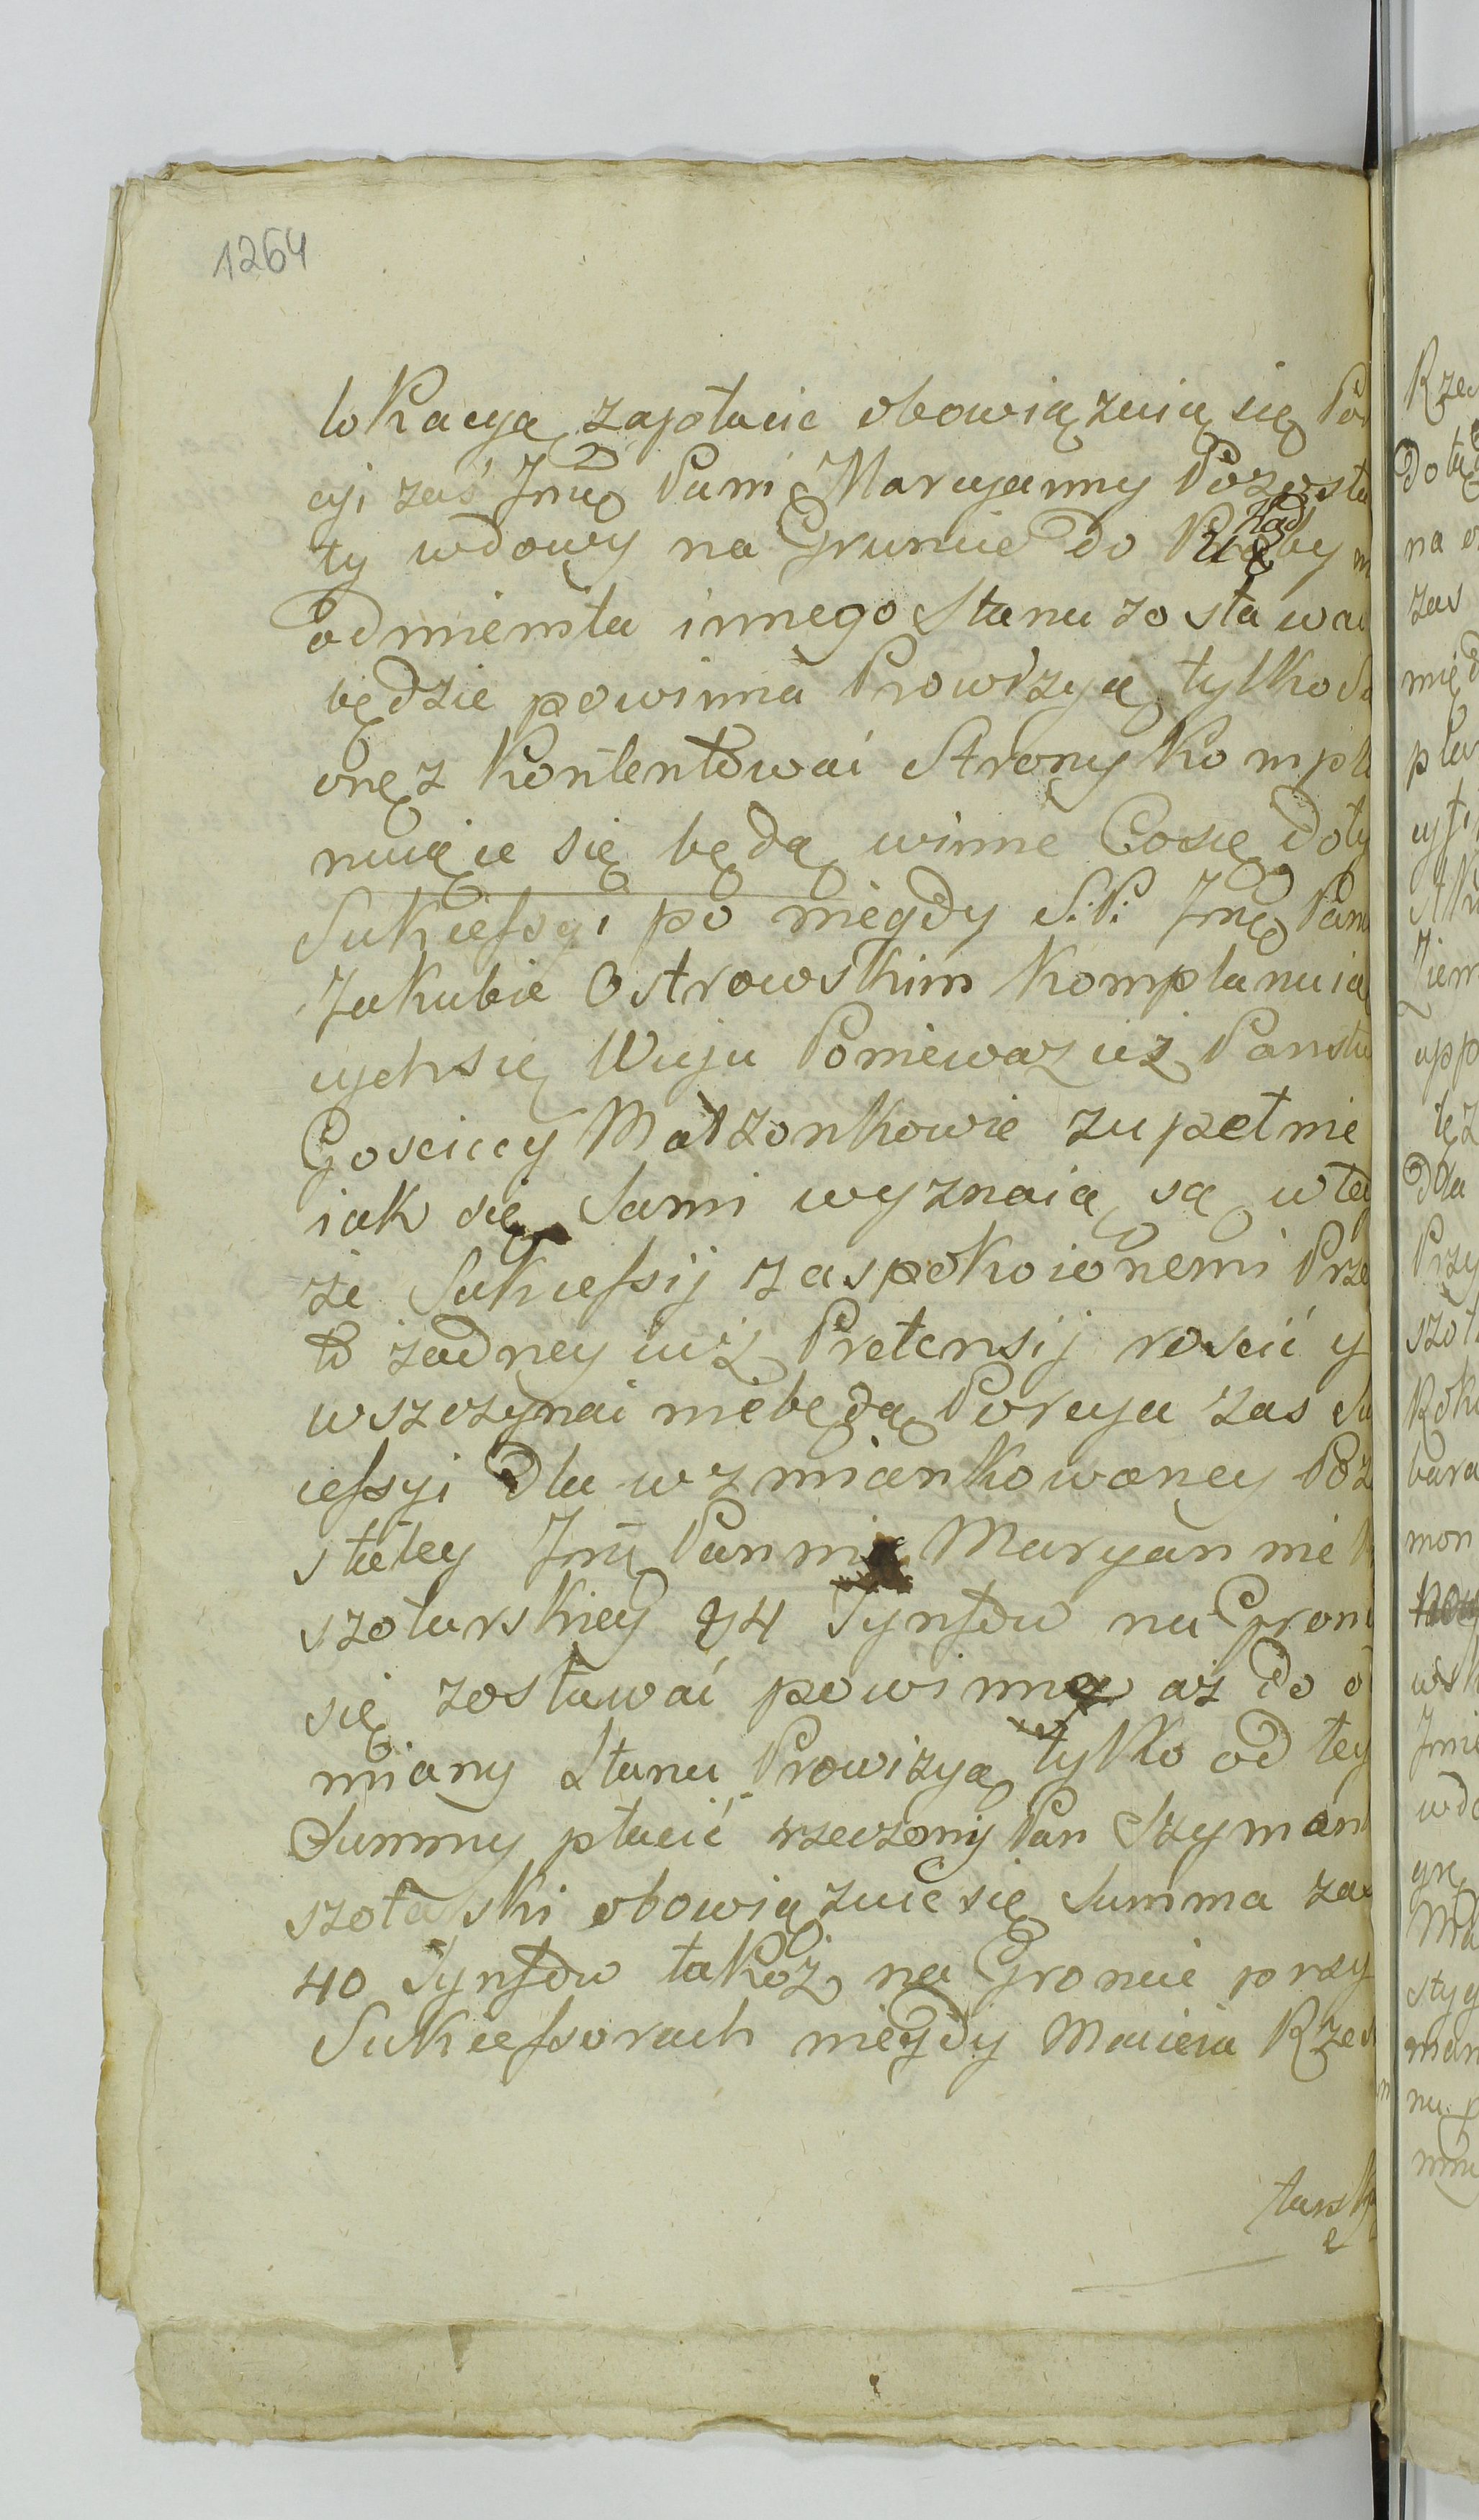 1264
lokacyą zapłacic obowiązuią się Po
cyi zaś Jmę Pani Maryanny Pozosta
ty wdowy na Gruncie do
odmienila innego Stanu zostawac
będzie powinna Prowizyą tylko
onęz Kontentować Strony Kompla
nuiące się będą winne Cosię doty
Sukcefsyi po niegdy S. P. Jmę Panu
Jakubie Ostrowskim Komplanuią
cych się Wuju Poniewaz iuż Panstw
Gosciccy Małzonkowie zupełnie
iak się Sami wyznaią są w tey
że Sukcefsij zaspokoionemi Prze
to żadney iuż Pretensij roscić y
wszczynać niebędą Porcya zas Su
cefsyi dla wzmiankowaney Poz
stałey Jmę Panni Maryannie
szotarskiey 94 Tynfów na Gron
się zostawać powinna aż do o
miany Stanu Prowizyą tylko od tey
Summy płacić rzeczony Pan Szymon
szotarski obowiązuie się Summa zas
40 Tynfów takoż na Groncie przy
Sukcefsorach niegdy Macieia Rzes
tarsk
Rze
do
na
zas
międ
pla
Ziem
app
też
dla
Przy
szot
Rok
bara
mon
wsk
Jmę
wdo
stęg
man
nu p